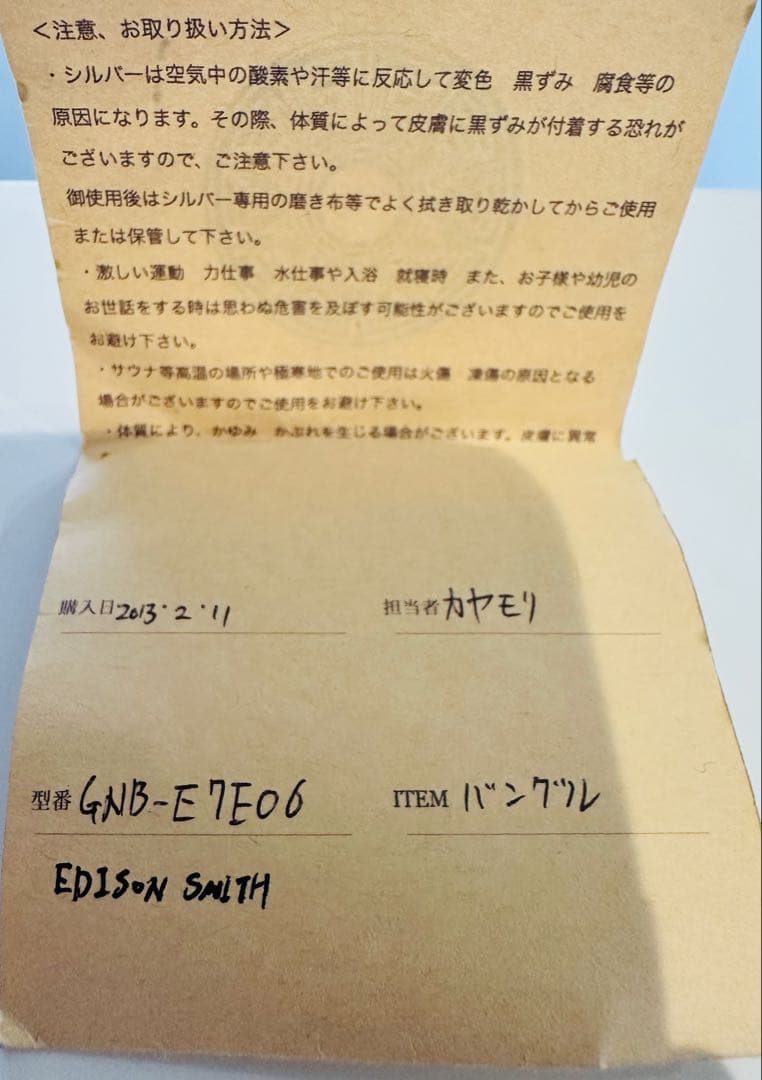 <注意、お取り扱い方法>
・シルバーは空気中の酸素や汗等に反応して変色　黒ずみ　腐食等の
原因になります。その際、体質によって皮膚に黒ずみが付着する恐れが
ございますので、ご注意下さい。
御使用後はシルバー専用の磨き布等でよく拭き取り乾かしてからご使用
または保管して下さい。
・激しい運動　力仕事　水仕事や入浴　就寝時　また、お子様や幼児の
お世話をする時は思わぬ危害を及ぼす可能性がございますのでご使用を
お避け下さい。
・サウナ等高温の場所や極寒地でのご使用は火傷　凍傷の原因となる
場合がございますのでご使用をお避け下さい。
・体質により、かゆみ　かぶれを生じる場合がございます。皮膚に異常
購入日 2013.2.11 担当者 カヤモリ
型番 GNB-E7E06 ITEM バングル
EDISON SMITH